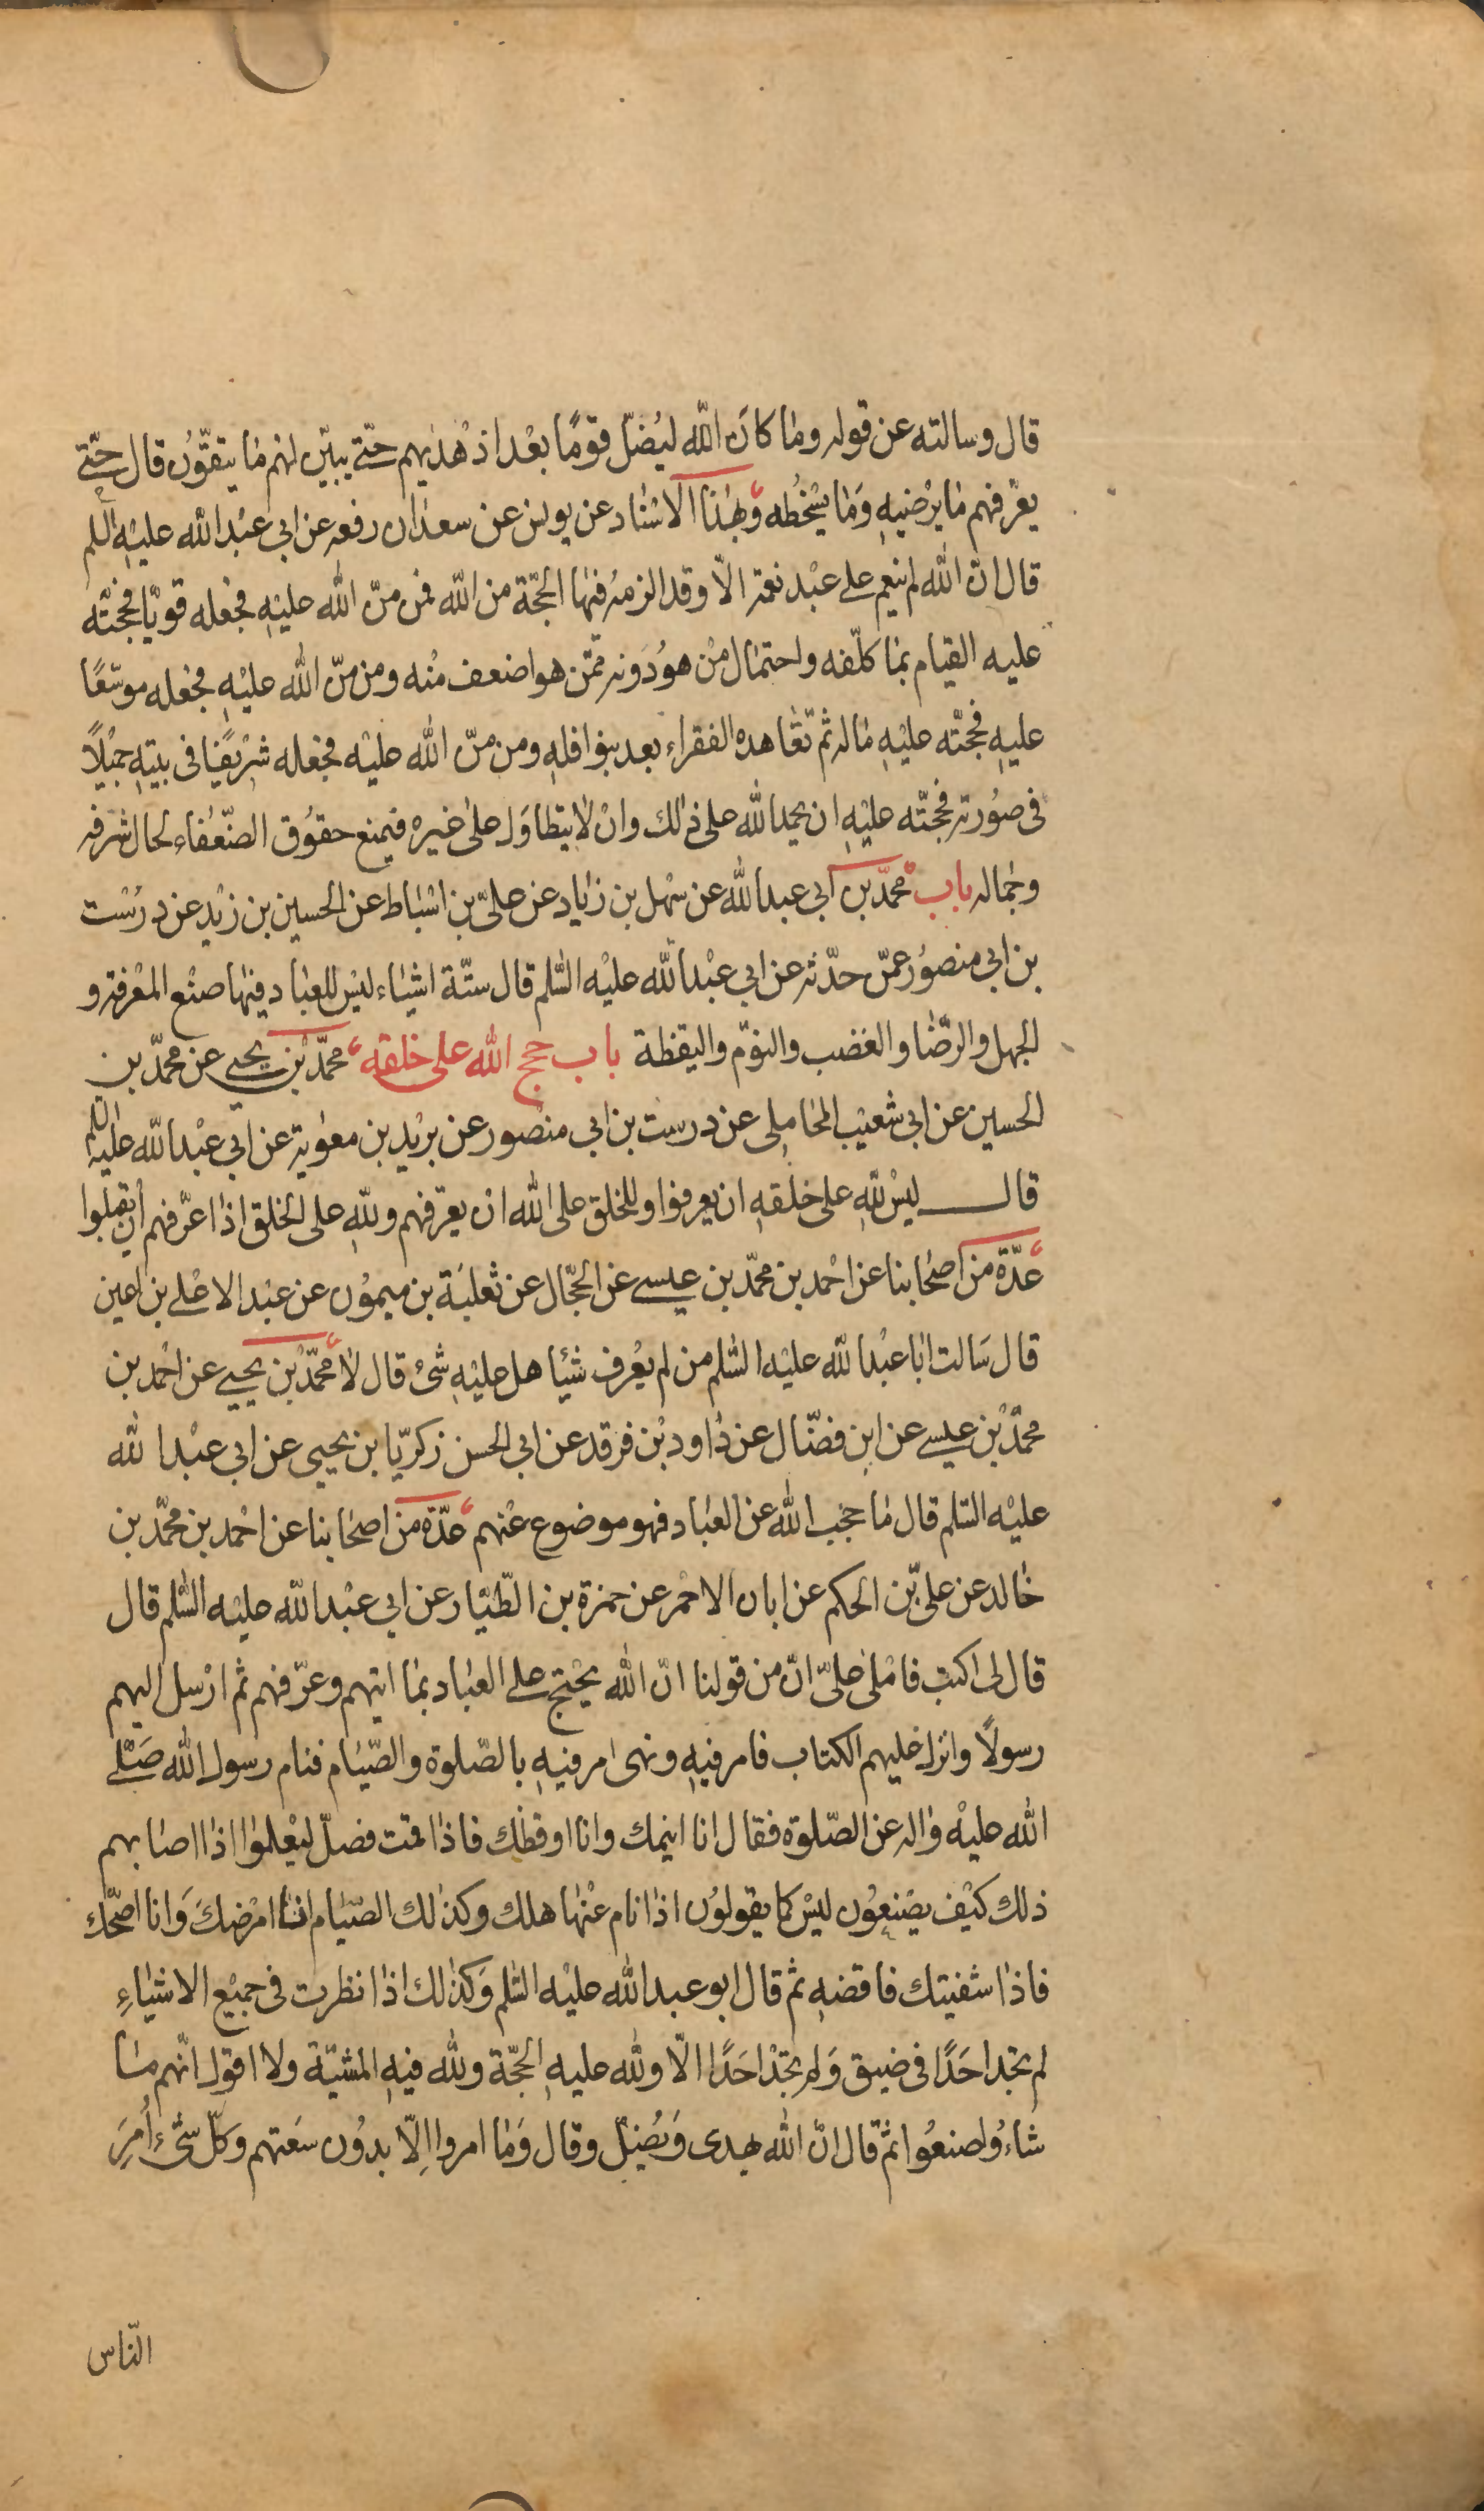 قال وسالته عن قوله وما كان الله ليُضلّ قومًا بعْد اذ هْديهم حتّى يبيّن لهم ما يتّقون قال حتّى
يعرّفهم ما يرْضيهِ وَما يسْخُطه وبهذا الاسْناد عن يونس عن سعدان رفعه عن ابي عبْد الله عليْهِ السلم
قال انّ الله لم ينعم على عبْد نعمة الّا وقد الزمهُ فيها الحجّة من الله فمن منّ الله عليْهِ فجعله قويّا فحجّته
عليه القيام بما كلّفه واحتمال منْ هوُ دَونه ممّن هو اضعف منْه ومن منّ الله عليْهِ فجعله موسّعًا
عليهِ فحجّته عليْهِ ماله ثم تعاهده الفقراء بعد بنوافلهِ ومن منّ الله عليْه فجعله شريفًا في بيتهِ جميْلًا
في صوُرته فحجّته عليْهِ ان يحمد الله على ذلك وانْ لا يتطاوَل على غيره فيمنع حقوُق الضّعَفاء لحال شرفه
وجماله باب محمّد بن ابي عبد الله عن سهْل بن زياد عن عليّ بن اسْباط عن الحسين بن زيْد عن درُسْت
بن ابي منصوُر عمّن حدّثه عن ابي عبْد الله عليْه السّلم قال ستّة اشياء ليْس للعباد فيها صنْع المعْرفة و
الجهل والرّضا والغضب والنوّم واليقظة باب حجج الله على خلقه محمّد بْن يحيى عن محمّد بن
الحسين عن ابي شعيْب المحاملى عن درست بن ابي منصْور عن بريْد بن معوية عن ابي عبْد الله عليْه السلم
قال ليْس للهِ على خلقهِ ان يعرفوا وللخلق على الله انْ يعرّفهم وللهِ على الخلق اذا عرّفهم ان يقبلوا
عدّة من اصحابنا عن احْمد بن محمّد بن عيسى عن الحجّال عن ثعلبَة بن ميموُن عن عبْد الاعْلى بن اعين
قال سَالت ابا عبْد الله عليْه السّلم من لم يعْرف شيْئا هل عليْهِ شئ قال لا محمّد بْن يحيى عن احْمد بن
محمّد بْن عيسى عن ابن فضّال عن داود بْن فرقد عن ابي الحسن زكريّا بن يحيى عن ابي عبْد الله
عليْه السّلم قال ما حجب الله عن العباد فهو موضوع عنْهم عدّة من اصحابنا عن احْمد بن محمّد بن
خالد عن علىّ بن الحكم عن ابان الاحْمر عن حمزة بن الطّيّار عن ابي عبْد الله عليْه السّلم قال
قال لى اكتب فامْلى علىّ انّ من قولنا انّ الله يحْتجّ على العباد بما اتيهم وعرّفهم ثم ارْسل اليهم
رسولًا وانزل عليهم الكتاب فامر فيهِ ونهى امر فيهِ بالصّلوة والصّيام فنام رسول الله صَلّى
الله عليْه واله عن الصّلوة فقال انا انيمك وانا اوقظك فاذا قمت فصلّ ليعْلموا اذا اصابهم
ذلك كيْف يصْنعوُن ليْس كما يقولوُن اذا نام عنْها هلك وكذلك الصّيام انا امْرضكَ وَانا اصحّك
فاذا شفيتك فاقضهِ ثم قال ابو عبد الله عليْه السّلم وَكذلك اذا نظرت في جميْع الاشياءِ
لم تجد احَدًا في ضيق وَلم تجدْ احَدًا الّا ولله عليهِ الحجّة ولله فيهِ المشيّة ولا اقول انّهم ما
شاءُوا صنعُوا ثم قال انّ الله يهدى وَيُضلّ وقال وَما امروا اِلّا بدوُن سَعتهم وَكلّ شئ اُمِرَ
النّاس